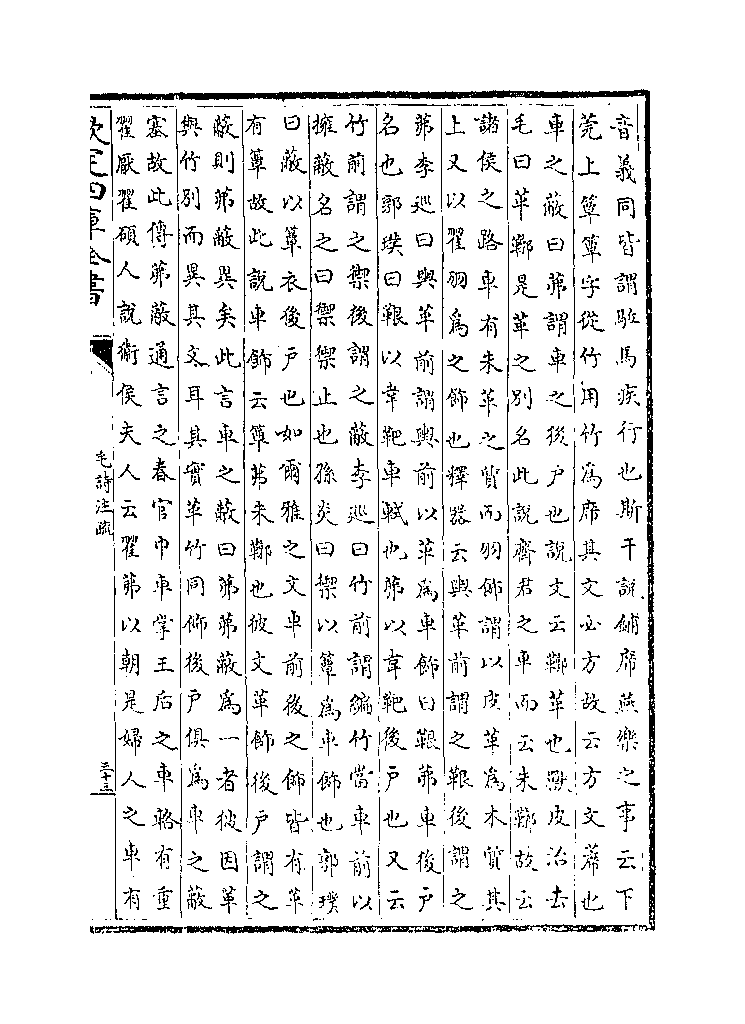 音義同皆謂駈馬疾行也斯干説鋪席燕樂之事云下
莞上簟簟字從竹用竹為席其文必方故云方文蓆也
車之蔽曰茀謂車之後户也説文云鞹革也獸皮治去
毛曰革鞹是革之别名此説齊君之車而云朱鞹故云
諸侯之路車有朱革之質而羽飾謂以皮革為本質其
上又以翟羽為之飾也釋器云輿革前謂之鞎後謂之
茀李廵曰輿革前謂輿前以革為車飾曰鞎茀車後户
名也郭璞曰鞎以韋靶車軾也茀以韋靶後户也又云
竹前謂之禦後謂之蔽李廵曰竹前謂編竹當車前以
擁蔽名之曰禦禦止也孫炎曰禦以簟為車飾也郭璞
曰蔽以簟衣後户也如爾雅之文車前後之飾皆有革
有簟故此説車飾云簟茀朱鞹也彼文革飾後户謂之
蔽則茀蔽異矣此言車之蔽曰茀茀蔽為一者彼因革
與竹别而異其文耳其實革竹同飾後户俱為車之蔽
塞故此傳茀蔽通言之春官巾車掌王后之車輅有重
翟厭翟碩人説衛侯夫人云翟茀以朝是婦人之車有
欽定四庫全書
毛詩注疏
三十三